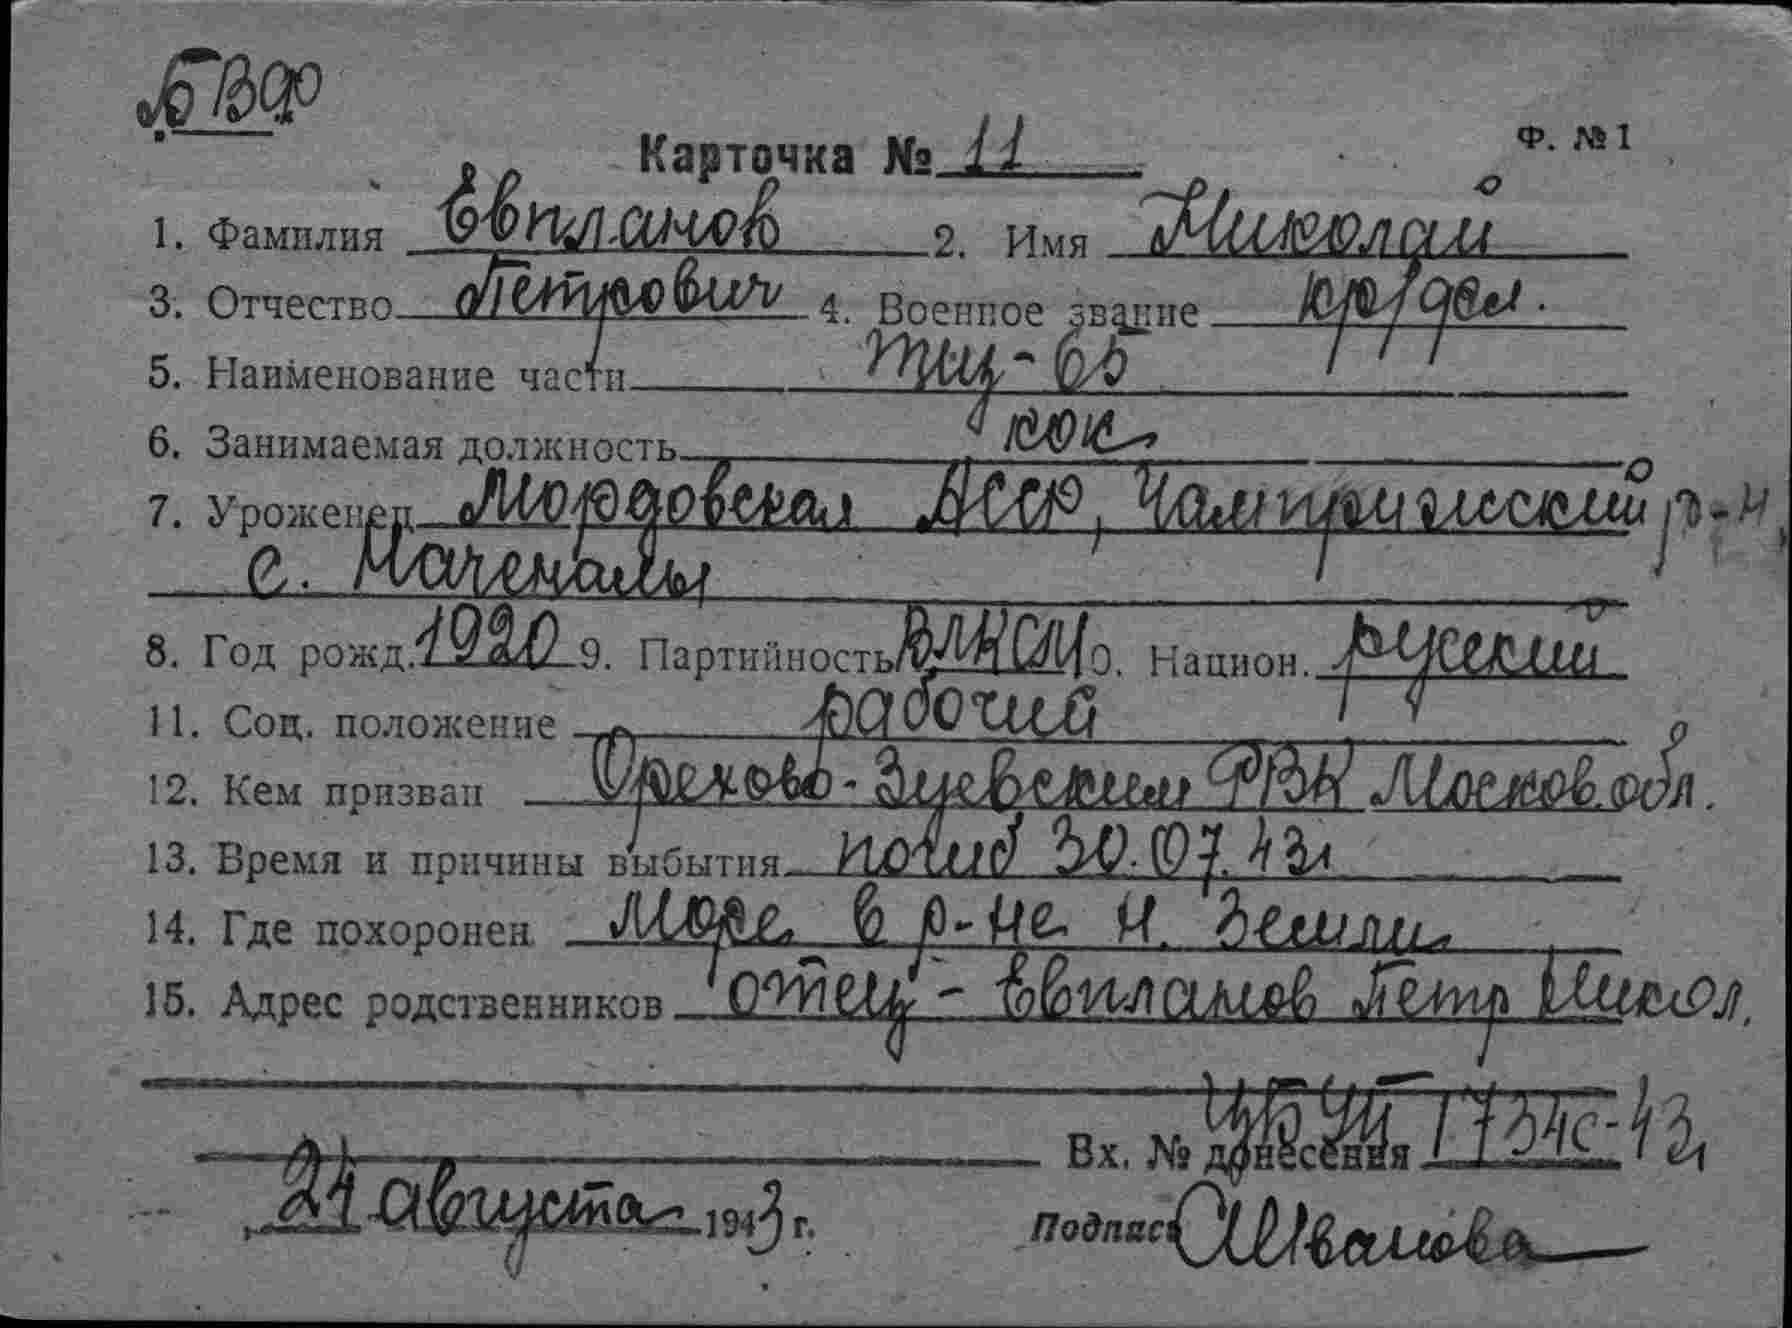 БВФ
Карточка № 11
Ф. №1
1. Фамилия Евпланов 2. Имя Николай
3. Отчество Петрович 4. Военное звание кр/фл.
5. Наименование части ТЩ-65
6. Занимаемая должность кок
7. Уроженец Мордовская АССР, р-н,
с. Мачемалы
8. Год рожд. 1920 9. Партийность ВЛКСМ 10. Национ. русский
11. Соц. положение рабочий
12. Кем призван Орехово-Зуевским РВК Москов. обл.
13. Время и причины выбытия погиб 30.07.43г
14. Где похоронен море в р-не Н. Земли
15. Адрес родственников отец - Евпланов Петр Никол.
Вх. № донесения 1734с-43г
21 августа 1943 г.
Подпись Иванова